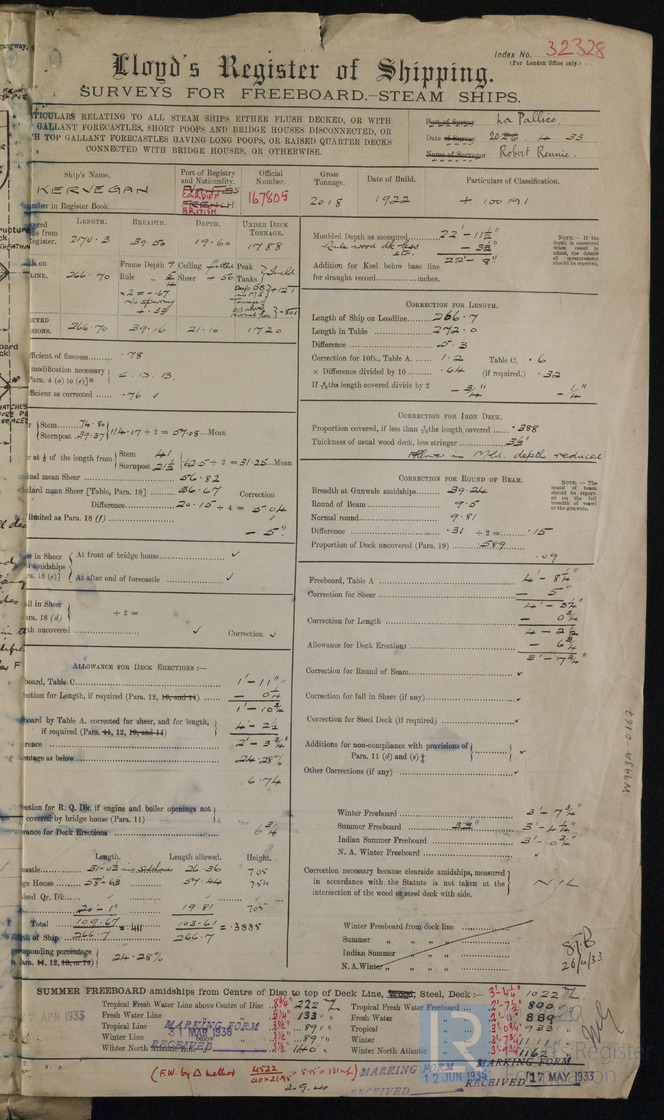 Index No. 32328
(For London Office only.)
Lloyd's Register of Shipping.
SURVEYS FOR FREEBOARD.—STEAM SHIPS.
TICULARS RELATING TO ALL STEAM SHIPS EITHER FLUSH DECKED, OR WITH
GALLANT FORECASTLES, SHORT POOPS AND BRIDGE HOUSES DISCONNECTED, OR
H TOP GALLANT FORECASTLES HAVING LONG POOPS, OR RAISED QUARTER DECKS
CONNECTED WITH BRIDGE HOUSES, OR OTHERWISE.
Port of Survey La Pallice
Date of Survey 4 33
Name of Surveyor Robert Rennie.
Ship's Name.
KERVEGAN
umber in Register Book
Port of Registry and Nationality.
NANTES
CARDIFF
FRENCH
BRITISH
Official Number.
167805
Gross Tonnage.
2018
Date of Build.
1922
Particulars of Classification.
+ 100 A1
LENGTH. BREADTH. DEPTH. UNDER DECK TONNAGE.
270.3 39.50 19.60 1788
266.70 Frame Depth 9 Ceiling fitted Peak
Rule Sheer + .56 Tanks
266.70 39.16 21.10 1720
efficient of fineness .78
modification necessary
Para. 4 (a) to (e)]*
efficient as corrected .76 ✓
Stem 74.80
Sternpost 39.37 114.17 ÷ 2 = 57.08 Mean
r at ⅛ of the length from Stem 41
Sternpost 21½ 62.5 ÷ 2 = 31.25 Mean
mean Sheer 56.82
dard mean Sheer [Table, Para. 18] 36.67 Correction
Difference 20.15 ÷ 4 = 5.04
limited as Para. 18 (f) – 5".
in Sheer amidships
ra. 18 (e)]
At front of bridge house ✓
At after end of forecastle ✓
all in Sheer
ara. 18 (d) ÷ 2 =
th uncovered ✓ Correction ✓
ALLOWANCE FOR DECK ERECTIONS:—
board, Table C 1' – 11"
ection for Length, if required (Para. 12, 13, and 14) – 0¼
1' – 10¾
board by Table A. corrected for sheer, and for length,
if required (Para. 11, 12, 13, and 14) 4' – 2½
rence 2' – 3¾"
entage as below 24.28%
6.74
ection for R. Q. Dk. if engine and boiler openings not
covered by bridge house (Para. 11)
wance for Deck Erections 6¾"
Length. Length allowed. Height.
castle 31-03 26.36 7.05
ge House 58-63 57.44
ised Qr. Dk. ✓
20-1" 19.81
Total 109.67 103.61
th of Ship 266.7 = .411 266.7 = .3885
sponding percentage
ara. 11, 12, 13, or 14) 24.28%
Moulded Depth as measured 22' – 11½"
Rule wood dk less – 3½"
22' – 8"
Addition for Keel below base line
for draught record inches.
NOTE.—If the depth is measured when vessel is afloat, the details of measurement should be reported.
CORRECTION FOR LENGTH.
Length of Ship on Loadline 266.7
Length in Table 272.0
Difference 5.3
Correction for 10ft., Table A. 1.2 Table C. .6
× Difference divided by 10 .64 (if required.) .32
If 6/10ths length covered divide by 2 – ¾" – ¼"
CORRECTION FOR IRON DECK.
Proportion covered, if less than 7/10ths length covered .388
Thickness of usual wood deck, less stringer 3½"
Allowed in Mld. depth reduced
CORRECTION FOR ROUND OF BEAM.
Breadth at Gunwale amidships 39.24
Round of Beam 9.5
Normal round 9.81
Difference .31 ÷ 2 = .15
Proportion of Deck uncovered (Para. 19) .589
.09
NOTE.—The round of beam should be reported on the full breadth of vessel at the gunwale.
Freeboard, Table A 4' – 8¼"
Correction for Sheer – 5"
4' – 3¼"
Correction for Length – 0¾
4 – 2½
Allowance for Deck Erections – 6¾
3' – 7¾"
Correction for Round of Beam ✓
Correction for fall in Sheer (if any) ✓
Correction for Steel Deck (if required) ✓
Additions for non-compliance with provisions of
Para. 11 (d) and (e) ‡ ✓
Other Corrections (if any) ✓
W943A-0167
Winter Freeboard 3' – 7¾"
Summer Freeboard 3½" 3' – 4¼"
Indian Summer Freeboard 3' – 0¾"
N. A. Winter Freeboard ✓
Correction necessary because clearside amidships, measured
in accordance with the Statute is not taken at the
intersection of the wood or steel deck with side. NIL
Winter Freeboard from deck line
Summer " " " "
Indian Summer " " "
N. A. Winter " " "
26/4/33
SUMMER FREEBOARD amidships from Centre of Disc to top of Deck Line, Wood, Steel, Deck:– 3'-4¼" 1022
Tropical Fresh Water Line above Centre of Disc 8¾" 222
Fresh Water Line " " 5¼" 133
Tropical Line " " 3½" 89
Winter Line below " 3½" 89
Winter North Atlantic Line " 5½" 140
Tropical Fresh Water Freeboard 2'-7½" 800
Fresh Water " 889
Tropical " 3'-0¾" 933
Winter " 3'-7¾" 1111
Winter North Atlantic " 1162
27 APR 1933
MARKING FORM
31 MAR 1936
RECEIVED
(F.W. by Δ method 4522 / 40×21.95 = 5.15 = 131)
2-9-40
MARKING FORM
12 JUN 1935
RECEIVED
MARKING FORM
RECEIVED 17 MAY 1933
Lloyd's Register
Foundation